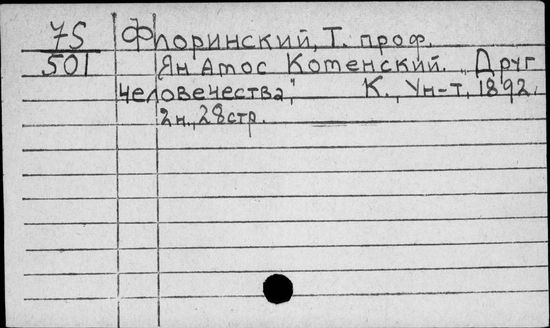 75 Флоринский, Т. проф.
501 Ян Амос Коменский. „Друг
человечества", К., Ун-т, 1892.
2н., 28стр.